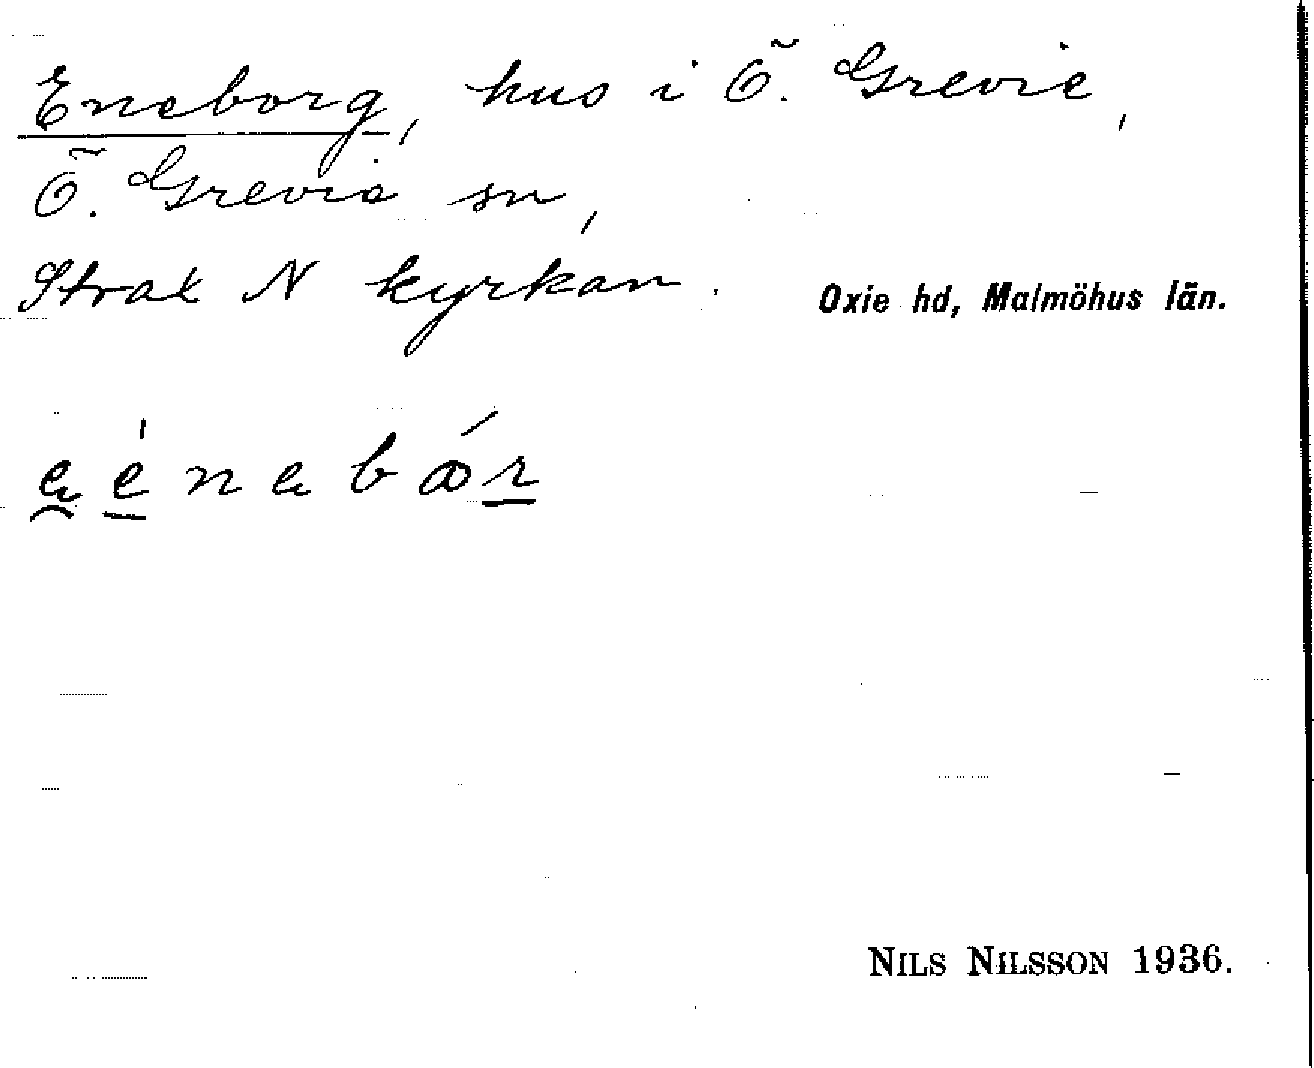 Eneborg, hus i Ö. Grevie,
Ö. Grevie sn,
Strax N kyrkan.
Oxie hd, Malmöhus län.
NILS NILSSON 1936.